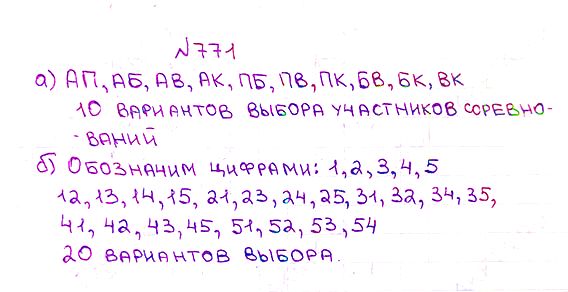 №771
а) АП, АБ, АВ, АК, ПБ, ПВ, ПК, БВ, БК, ВК
10 ВАРИАНТОВ ВЫБОРА УЧАСТНИКОВ СОРЕВНО-
-ВАНИЙ
б) ОБОЗНАЧИМ ЦИФРАМИ: 1, 2, 3, 4, 5
12, 13, 14, 15, 21, 23, 24, 25, 31, 32, 34, 35,
41, 42, 43, 45, 51, 52, 53, 54
20 ВАРИАНТОВ ВЫБОРА.